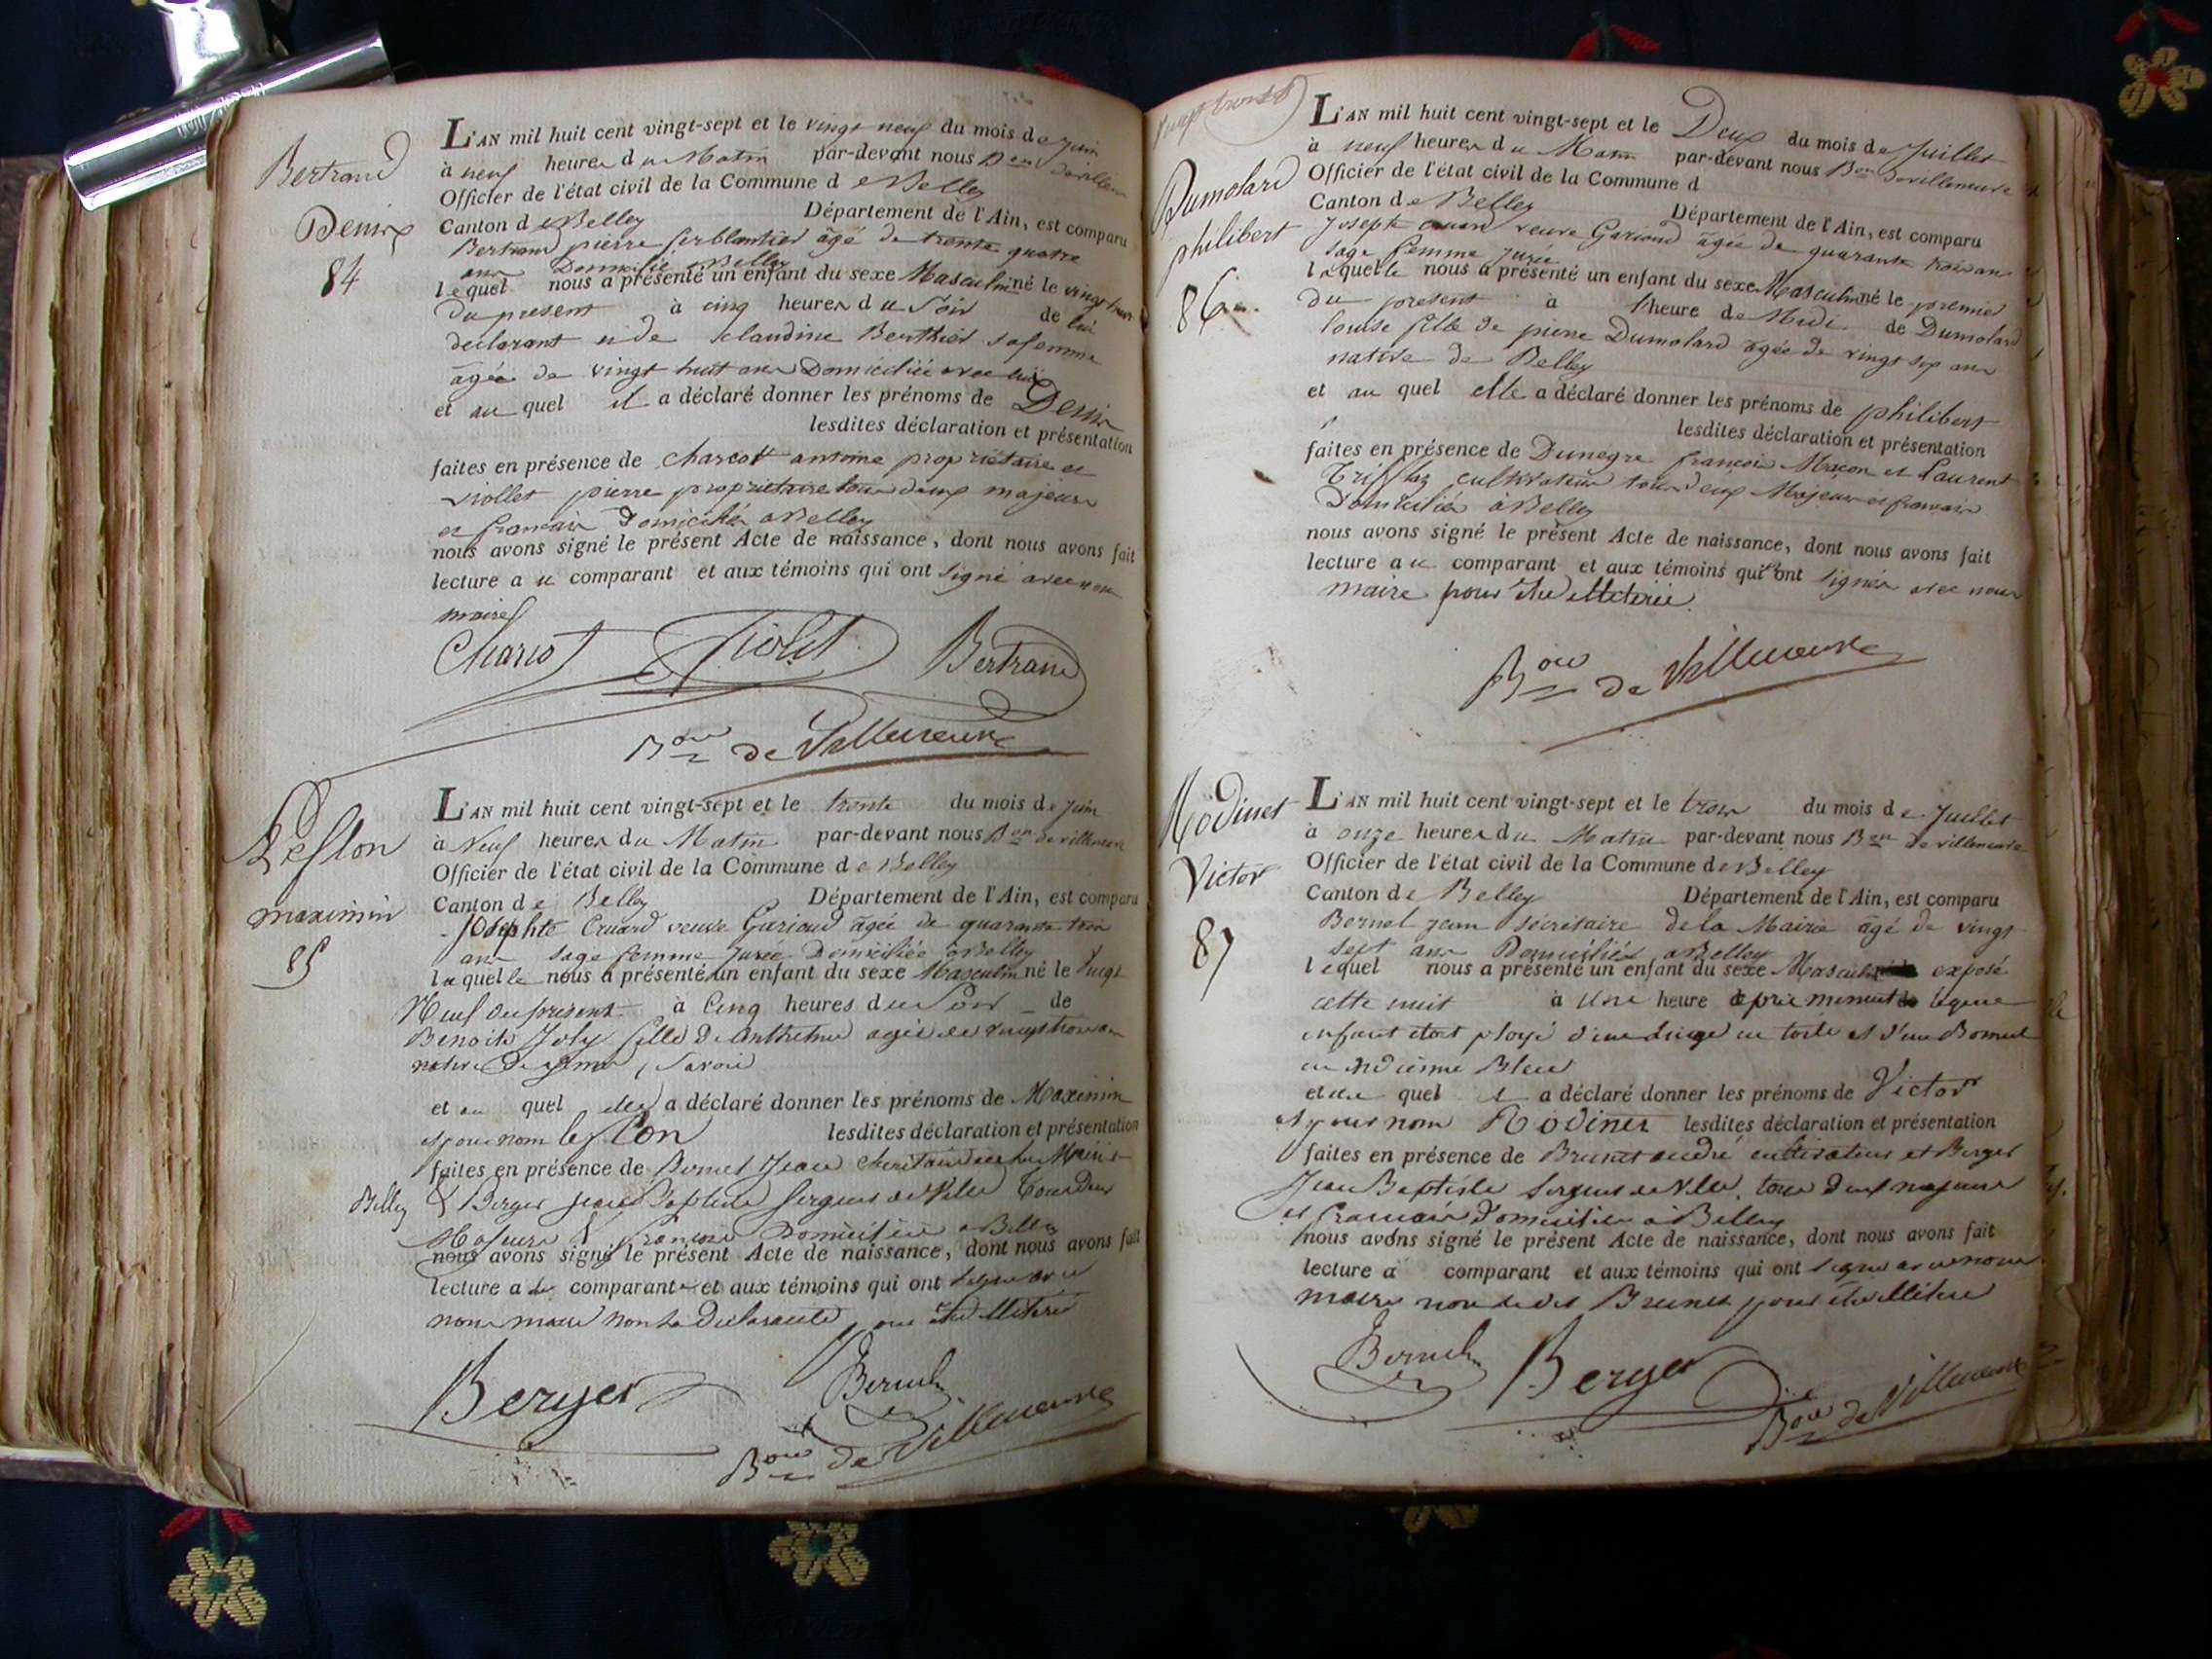 Bertrand
Denis
84
L'AN mil huit cent vingt-sept et le vingt neuf du mois de juin
à neuf heures du Matin par-devant nous Bon devilleneuve
Officier de l'état civil de la Commune d e Belley
Canton d e Belley Département de l'Ain, est comparu
Bertrand pierre ferblantier âgé de trente quatre
ans Domicilié a Belley
lequel nous a présenté un enfant du sexe Masculin né le vingt
du present à cinq heures du Soir de lui
declarant et de claudine Berthier sa femme
âgée de vingt huit ans Domiciliée avec lui
et au quel il a déclaré donner les prénoms de Denis
lesdites déclaration et présentation
faites en présence de antoine propriétaire et
viollet pierre propriétaire tous deux majeurs
et francais Domiciliés a Belley
nous avons signé le présent Acte de naissance, dont nous avons fait
lecture a u comparant et aux témoins qui ont signé avec nous
maire
Violet Bertrand
Bon de Villeneuve
Leflon
maximin
85
L'AN mil huit cent vingt-sept et le trente du mois de juin
à Neuf heures du Matin par-devant nous Bon de villeneuve
Officier de l'état civil de la Commune d e Belley
Canton d e Belley Département de l'Ain, est comparu
Josephte Cruard veuve Guriaud âgée de quarante trois
ans sage femme jurée Domiciliée a Belley
laquelle nous a présenté un enfant du sexe Masculin né le vingt
Neuf du présent à Cinq heures du Soir de
Benoite Joly fille d' agée de vingt trois ans
native de Savoie
et au quel elle a déclaré donner les prénoms de Maximin
et pour nom leflon lesdites déclaration et présentation
faites en présence de Bernel Jean de la Mairie
Belley & Berger Jean Baptiste Sergent de Ville tous deux
Majeurs & francais Domiciliés a Belley
nous avons signé le présent Acte de naissance, dont nous avons fait
lecture a la comparante et aux témoins qui ont signé avec
nous maire non la Declarante pour être illiterée
Berger Bernel
Bon de Villeneuve
Dumolard
philibert
86
L'AN mil huit cent vingt-sept et le Deux du mois de Juillet
à neuf heures du Matin par-devant nous Bon devilleneuve
Officier de l'état civil de la Commune d
Canton d e Belley Département de l'Ain, est comparu
Joseph veuve Gariaud âgée de quarante trois ans
sage femme jurée
laquelle nous a présenté un enfant du sexe Masculin né le premier
du present à l'heure de Midi de Dumolard
louise fille de pierre Dumolard âgée de vingt sep ans
native de Belley
et au quel elle a déclaré donner les prénoms de philibert
lesdites déclaration et présentation
faites en présence de Dunegre françois Maçon et Laurent
cultivateur tous deux Majeurs et francais
Domiciliés à Belley
nous avons signé le présent Acte de naissance, dont nous avons fait
lecture a u comparant et aux témoins qui ont signés avec nous
maire pour
Bon de Villeneuve
Rodinet
Victor
87
L'AN mil huit cent vingt-sept et le trois du mois d e Juillet
à onze heures du Matin par-devant nous Bon de villeneuve
Officier de l'état civil de la Commune de Belley
Canton d e Belley Département de l'Ain, est comparu
Bernel jean secretaire de la Mairie âgé de vingt
sept ans Domicilié a Belley
lequel nous a présenté un enfant du sexe Masculin exposé
cette nuit à Une heure après minuit lequel
enfant etoit ployé d'un linge en toile et d'un Bonnet
en indienne Bleu
et au quel il a déclaré donner les prénoms de Victor
et pour nom Rodinet lesdites déclaration et présentation
faites en présence de Brunet andré cultivateur et Berger
Jean Baptiste Sergent de Ville, tous deux majeurs
et francais domiciliés à Belley
nous avons signé le présent Acte de naissance, dont nous avons fait
lecture a comparant et aux témoins qui ont signé avec nous
maire non ledit Brunet pour être illitéré
Bernel Berger
Bon de Villeneuve